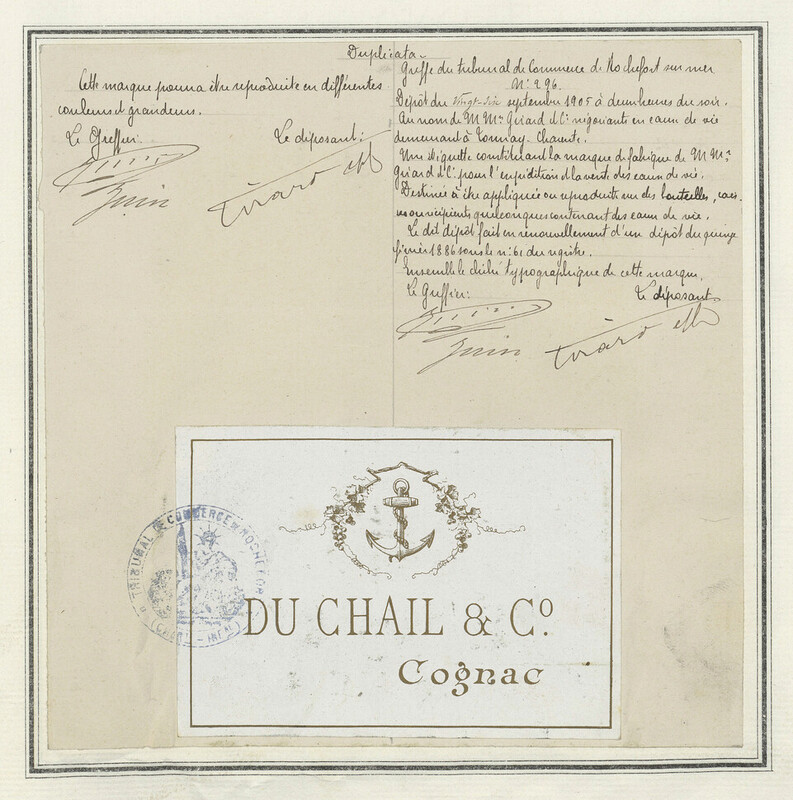 Duplicata
Cette marque pourra être reproduite en différentes
couleurs et grandeurs.
Le Greffier: Le déposant:
Girard et Cie
Greffe du tribunal de Commerce de Rochefort sur mer
N° 296.
Dépôt du vingt-six septembre 1905 à deux heures du soir.
Au nom de M Mrs Girard et Cie négociants en eaux de vie
demeurant à Tonnay-Charente.
Une étiquette constituant la marque de fabrique de M Mrs
Girard et Cie pour l'expédition et la vente des eaux de vie.
Destinée à être appliquée ou reproduite sur des bouteilles, cais-
ses ou récipients quelconques contenant des eaux de vie.
Le dit dépôt fait en renouvellement d'un dépôt du quinze
février 1886 sous le n° 61 du registre.
Ensemble le cliché typographique de cette marque.
Le Greffier: Le déposant
Girard et Cie
TRIBUNAL DE COMMERCE DE ROCHEFORT
(CHARte - INFre)
DU CHAIL & Co
Cognac